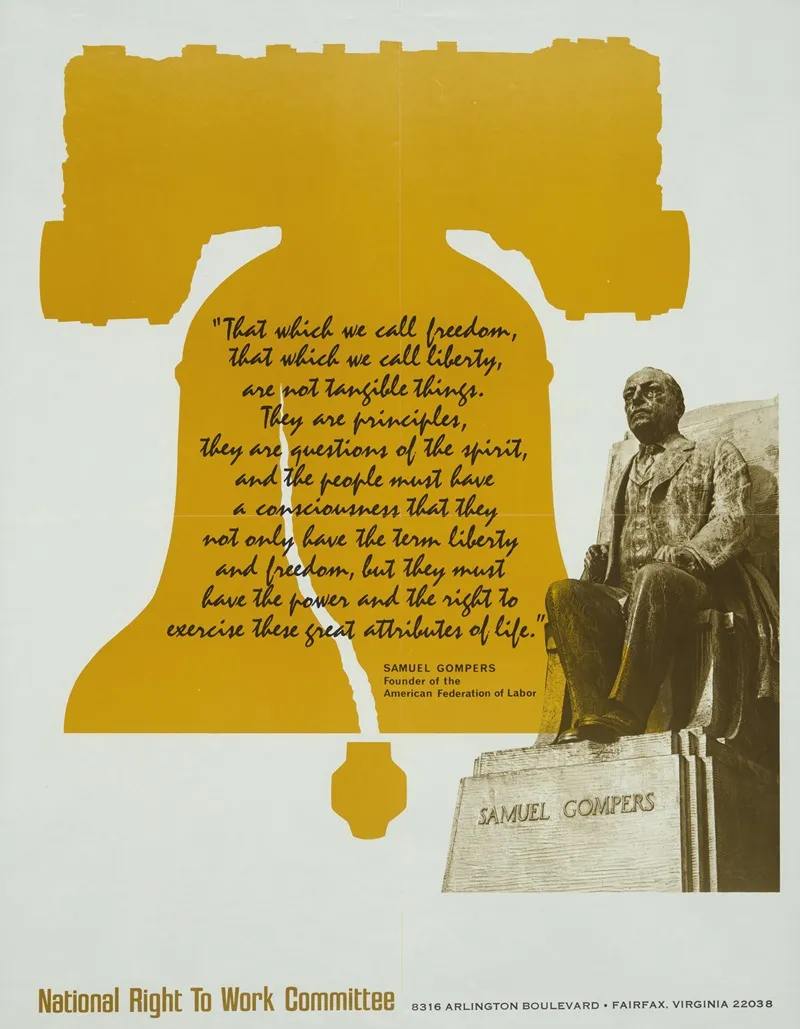 "That which we call freedom,
that which we call liberty,
are not tangible things.
They are principles,
they are questions of the spirit,
and the people must have
a consciousness that they
not only have the term liberty
and freedom, but they must
have the power and the right to
exercise these great attributes of life."
SAMUEL GOMPERS
Founder of the
American Federation of Labor
SAMUEL GOMPERS
National Right To Work Committee
8316 ARLINGTON BOULEVARD • FAIRFAX, VIRGINIA 22038